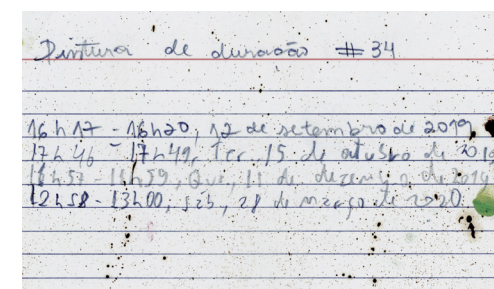 Pintura de duração #34
16h17 - 16h20, 12 de setembro de 2019
17h46 - 17h49, Ter, 15 de outubro de 2019
18h57 - 18h59, Qua, 11 de dezembro de 2019
12h58 - 13h00, sáb, 28 de março de 2020